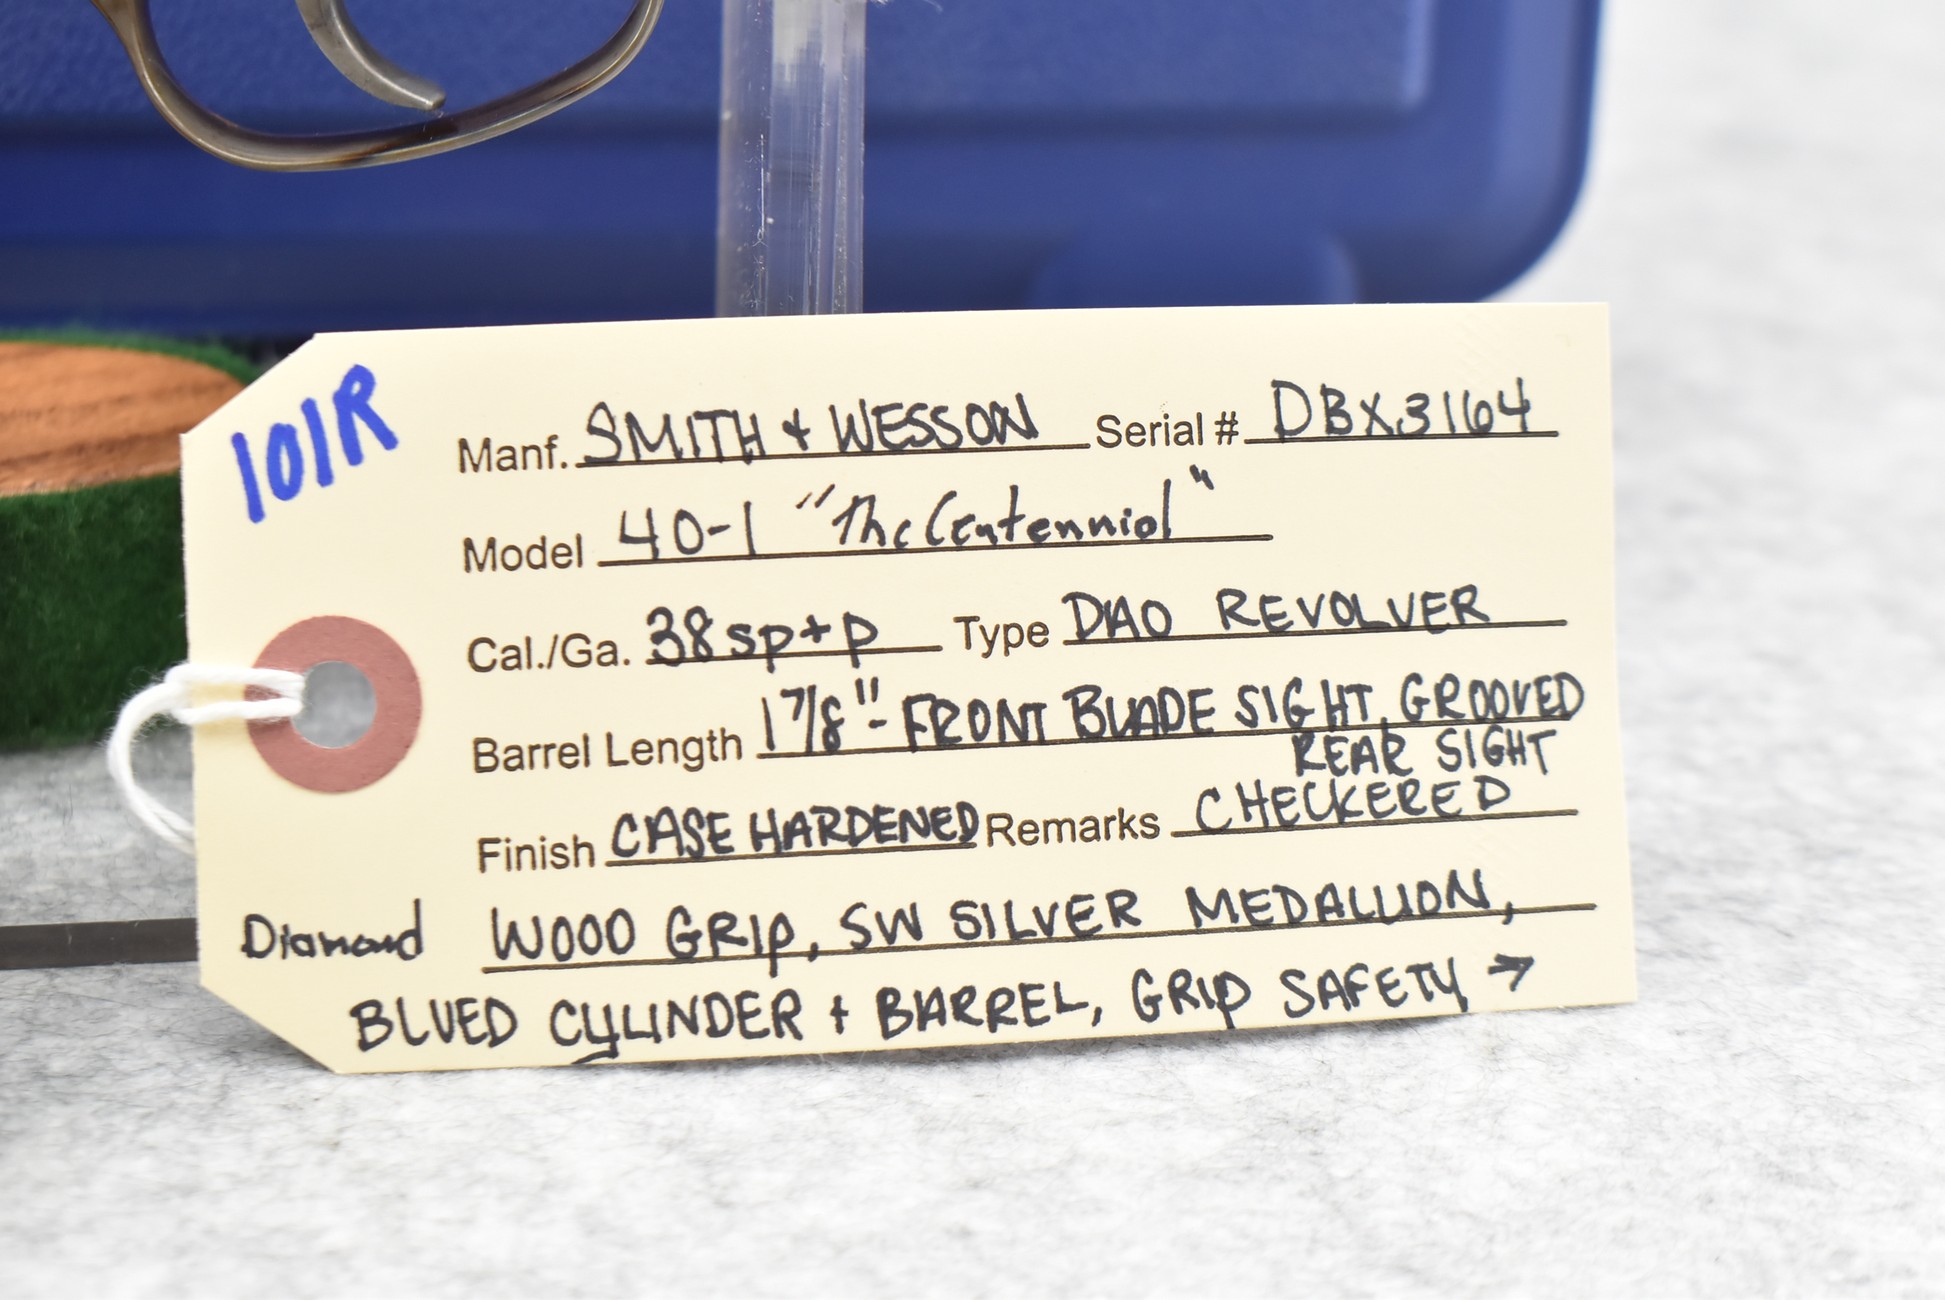 101R
Manf. SMITH + WESSON Serial # DBX3164
Model 40-1 "The Centennial"
Cal./Ga. 38 sp+p Type DAO REVOLVER
Barrel Length 1 7/8" - FRONT BLADE SIGHT, GROOVED
REAR SIGHT
Finish CASE HARDENED Remarks CHECKERED
Diamond WOOD GRIP, SW SILVER MEDALLION,
BLUED CYLINDER + BARREL, GRIP SAFETY →